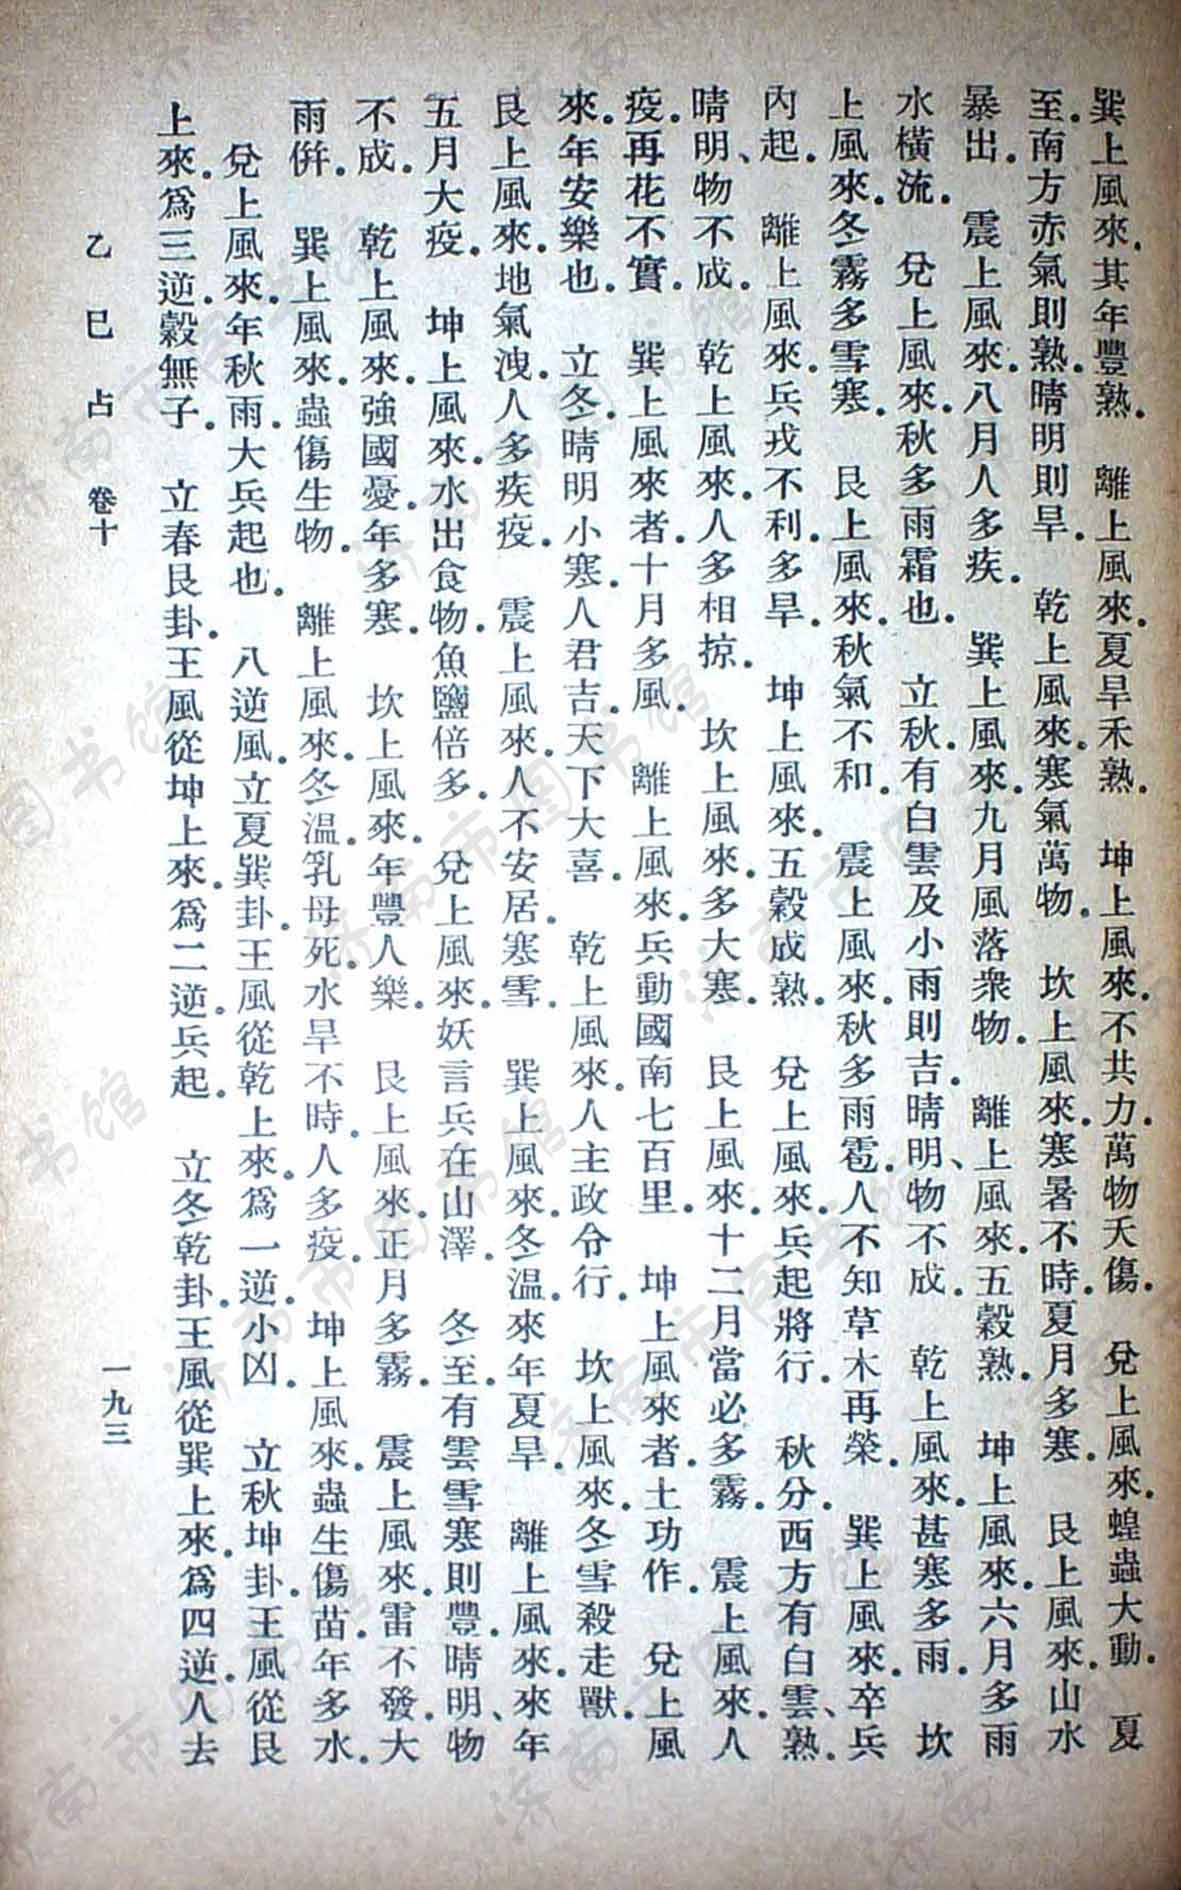 巽上風來.其年豐熟.　離上風來.夏旱禾熟.　坤上風來.不共力.萬物夭傷.　兌上風來.蝗蟲大動.　夏
至.南方赤氣則熟.晴明則旱.　乾上風來.寒氣萬物.　坎上風來.寒暑不時.夏月多寒.　艮上風來.山水
暴出.　震上風來.八月人多疾.　巽上風來.九月風落衆物.　離上風來.五穀熟.　坤上風來.六月多雨
水橫流.　兌上風來.秋多雨霜也.　立秋.有白雲及小雨則吉.晴明、物不成.　乾上風來.甚寒多雨.　坎
上風來.冬霧多雪寒.　艮上風來.秋氣不和.　震上風來.秋多雨雹.人不知草木再榮.　巽上風來.卒兵
內起.　離上風來.兵戎不利.多旱.　坤上風來.五穀成熟.　兌上風來.兵起將行.　秋分.西方有白雲、熟.
晴明、物不成.　乾上風來.人多相掠.　坎上風來.多大寒.　艮上風來.十二月當必多霧.　震上風來.人
疫.再花不實.　巽上風來者.十月多風.　離上風來.兵動國南七百里.　坤上風來者.土功作.　兌上風
來.來年安樂也.　立冬.晴明小寒.人君吉.天下大喜.　乾上風來.人主政令行.　坎上風來.冬雪殺走獸.
艮上風來.地氣洩.人多疾疫.　震上風來.人不安居.寒雪.　巽上風來.冬溫.來年夏旱.　離上風來.來年
五月大疫.　坤上風來.水出食物.魚鹽倍多.　兌上風來.妖言兵在山澤.　冬至.有雲雪寒則豐.晴明、物
不成.　乾上風來.強國憂.年多寒.　坎上風來.年豐人樂.　艮上風來.正月多霧.　震上風來.雷不發.大
雨倂.　巽上風來.蟲傷生物.　離上風來.冬溫.乳母死.水旱不時.人多疫.　坤上風來.蟲生傷苗.年多水.
　兌上風來.年秋雨.大兵起也.　八逆風.立夏巽卦.王風從乾上來.爲一逆.小凶.　立秋坤卦.王風從艮
上來.爲三逆.穀無子.　立春艮卦.王風從坤上來.爲二逆.兵起.　立冬乾卦.王風從巽上來.爲四逆.人去
乙巳占　卷十　一九三
济南市图书馆